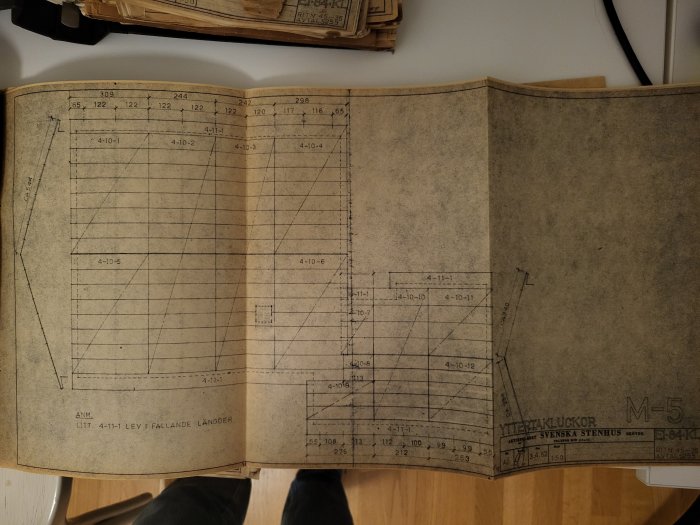 EI-84-KL
309 244 242 296
65 122 122 122 122 122 120 117 116 65
4-11-1
4-10-1 4-10-2 4-10-3 4-10-4
4-10-5 4-10-6
4-11-1
4-11-1
4-10-10 4-10-11
4-10-8 4-10-12
113
4-10-9
4-11-1
4-11-1
ANM.
LIST 4-11-1 LEV I FALLANDE LÄNGDER
55 108 113 112 100 99 99 55
276 212 253
YTTERTAKLUCKOR
SVENSKA STENHUS
M-5
EI-84-KL